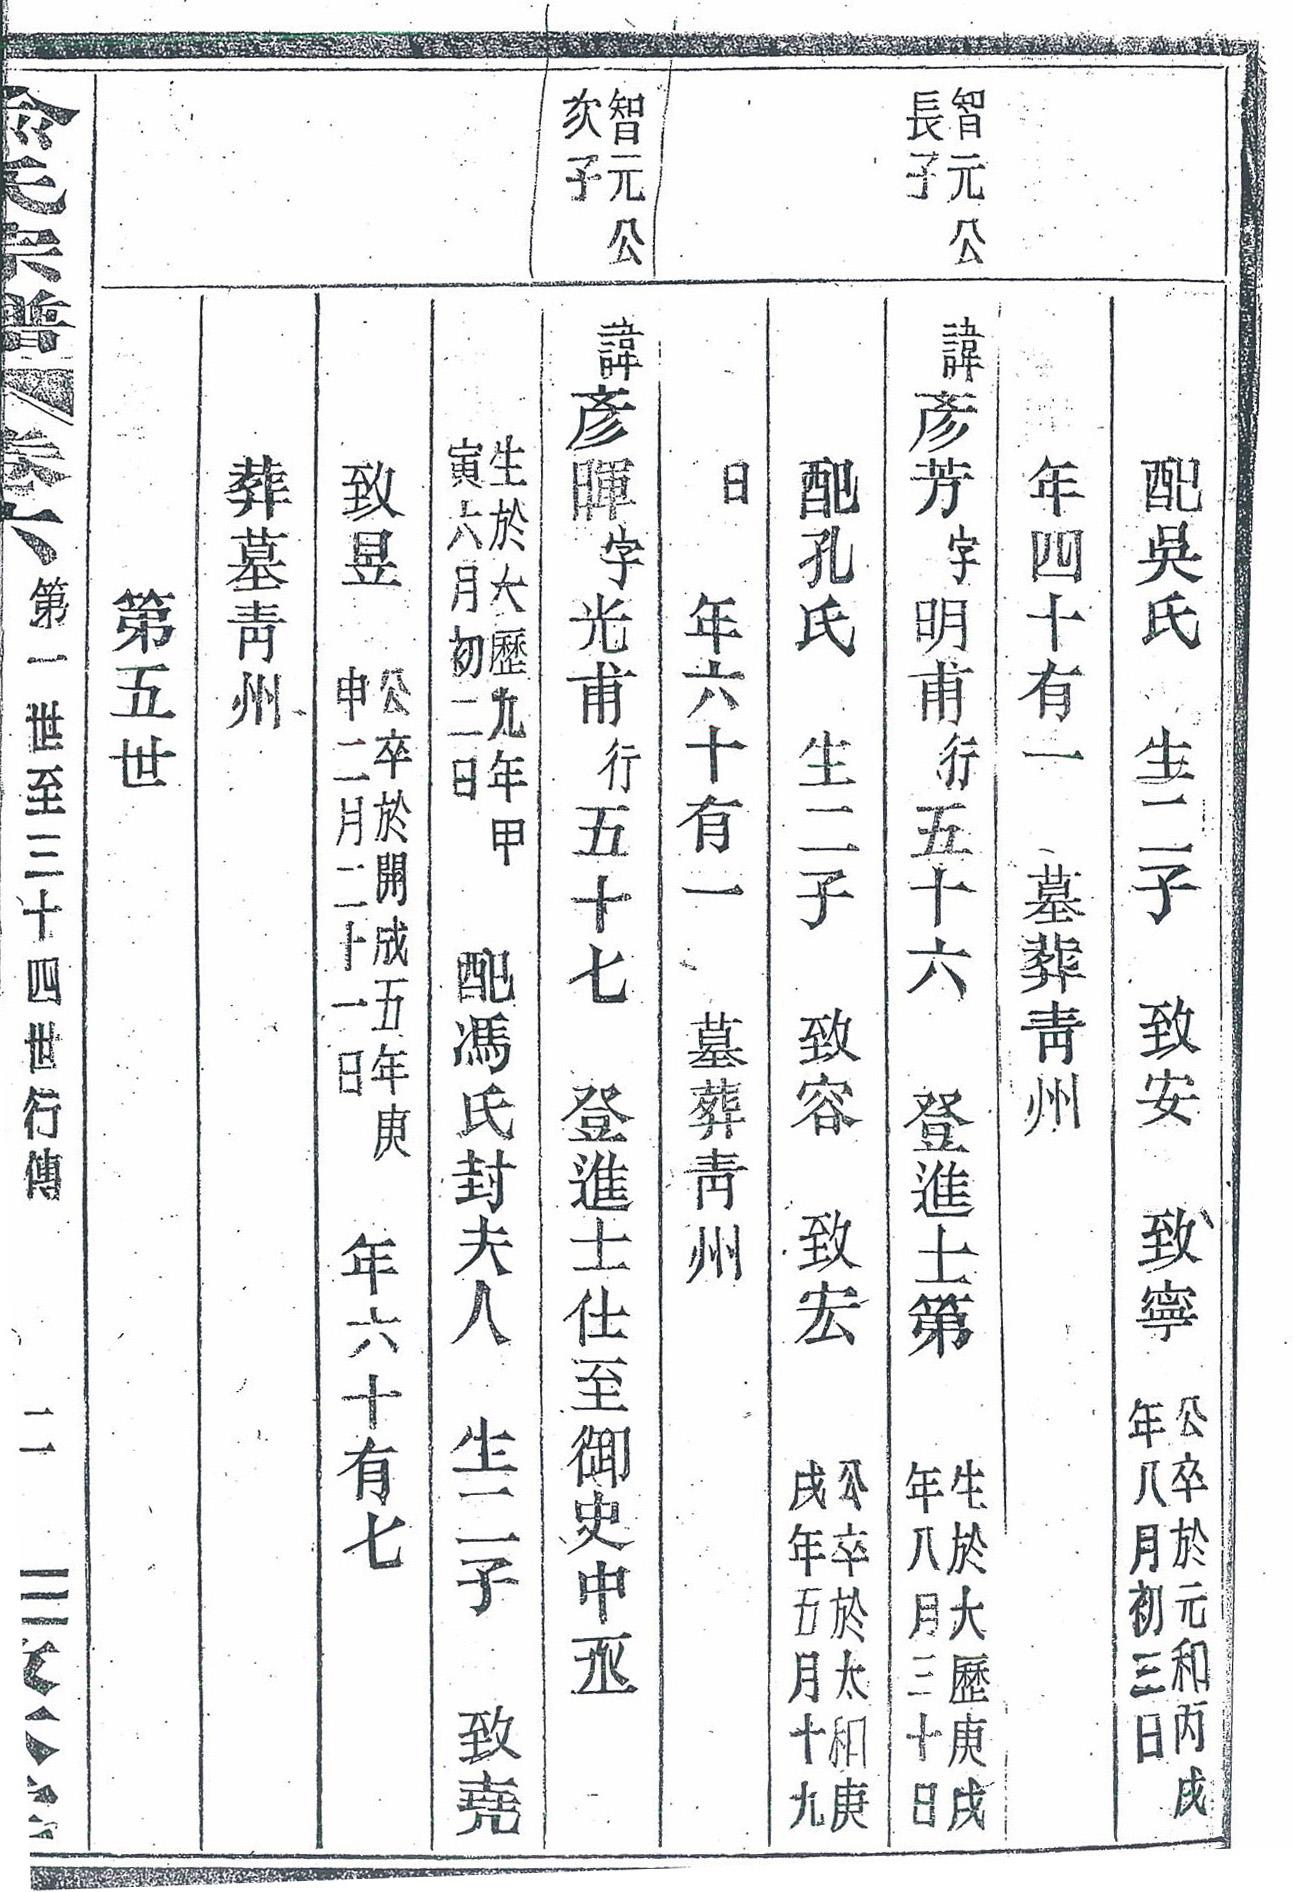 配吳氏 生二子 致安 致寧 公卒於元和丙戌
年八月初三日
年四十有一 墓葬青州
智元公
長子
諱彥芳字明甫行五十六 登進士第 生於大歷庚戌
年八月三十日
配孔氏 生二子 致容 致宏 公卒於太和庚
戌年五月十九
日 年六十有一 墓葬青州
智元公
次子
諱彥暉字光甫行五十七 登進士仕至御史中丞
生於大歷九年甲
寅六月初二日 配馮氏封夫人 生二子 致堯
致昱 公卒於開成五年庚
申二月二十一日 年六十有七
葬墓青州
第五世
俞氏宗譜 卷六 第一世至三十四世行傳 二